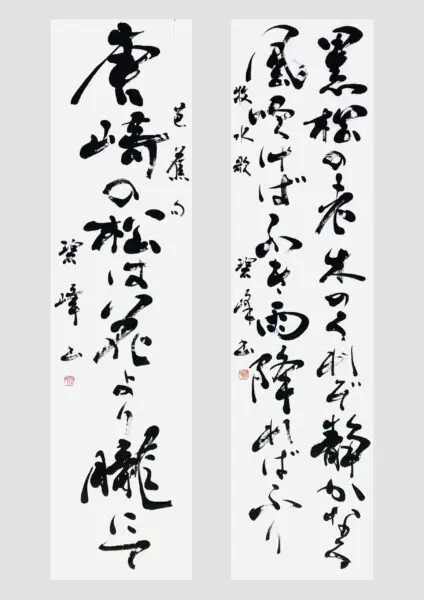 黒松の老木のうれぞ静かなる
風吹けばふき雨降ればふり
牧水歌
碧峰書
芭蕉句
唐崎の松は花より朧にて
碧峰書